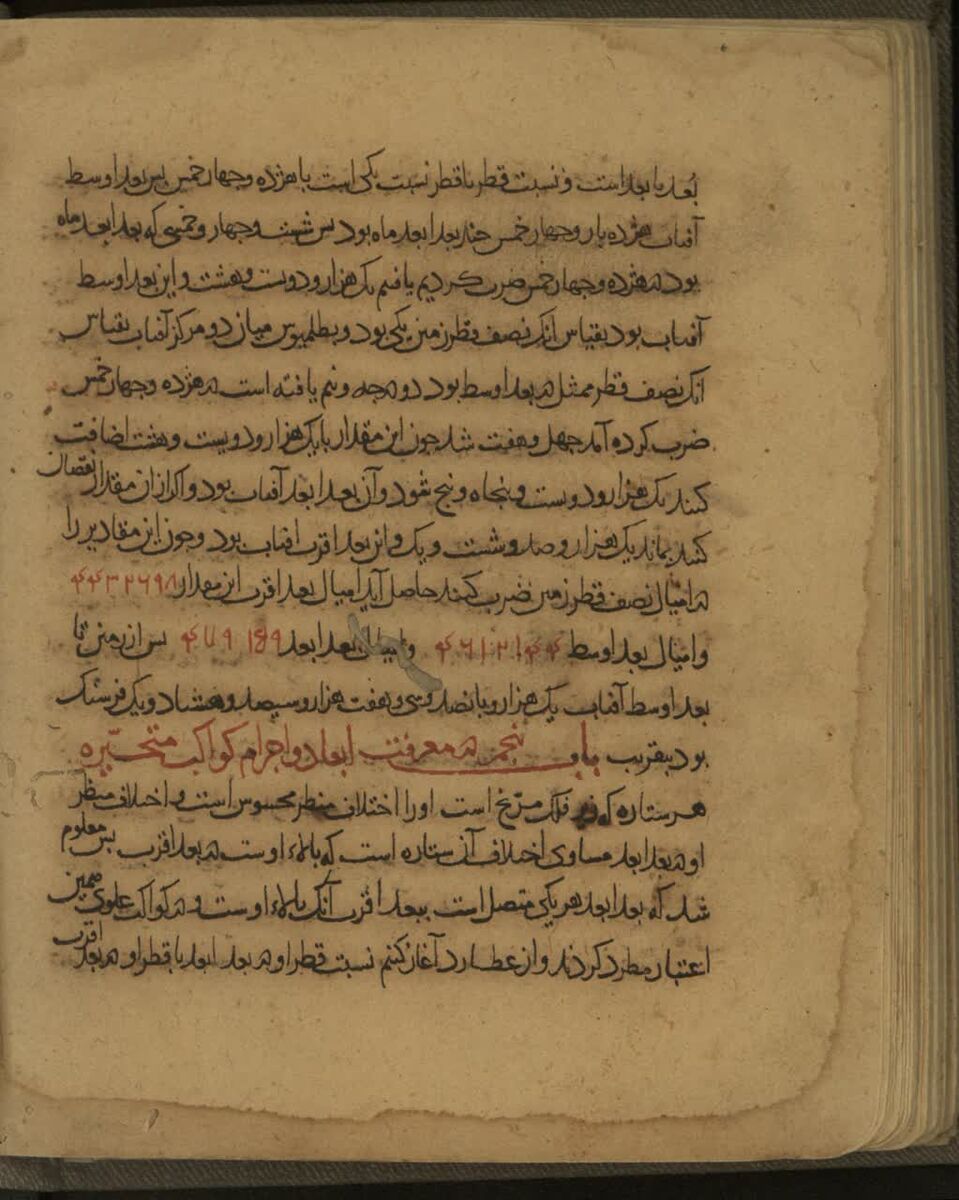 بُعد با بعد است و نسبت قطر با قطر نسبت یکی است با هژده و چهار خمس بس بعد اوسط
آفتاب هژده بار و چهار خمس چند بعد ابعد ماه بود بس شست و چهار و خمسی که بعد ابعد ماه
بود در هژده و چهار خمس ضرب کردیم یافتیم یک هزار و دویست و هشت و این بعد اوسط
آفتاب بود بقیاس آنک نصف قطر زمین یکی بود و بطلمیوس میان دو مرکز آفتاب بقیاس
آنک نصف قطر ممثل در بعد اوسط بود دو درجه و نیم یافته است در هژده و چهار خمس
ضرب کرده آمد چهل و هفت شد چون این مقدار با یک هزار و دویست و هشت اضافت
کنند یک هزار و دویست و پنجاه و پنج شود و آن بعد ابعد آفتاب بود و اگر از آن مقدار نقصان
کنند بماند یک هزار و صد و شست و یک و این بعد اقرب آفتاب بود و چون این مقادیر را
در امیال نصف قطر زمین ضرب کنند حاصل آید امیال بعد اقرب این مقدار ۴۴۳۲۶۹۸
و امیال بعد اوسط و امیال بعد ابعد بس از زمین تا
بعد اوسط آفتاب یک هزار و پانصد و سی و هفت هزار و سیصد و هشتاد و یک فرسنک
بود بتقریب باب پنجم در معرفت ابعاد و اجرام کواکب متحیّره
هر ستاره که فلک مرّیخ است او را اختلاف منظر محسوس است و اختلاف منظر
او در بعد ابعد مساوی اختلاف آن ستاره است که بالاء اوست در بعد اقرب بس معلوم
شد که بعد ابعد هر یکی متصل است ببعد اقرب آنک بالاء اوست و در کواکب علوی همین
اعتبار مطرد کردند و از عطارد آغاز کنیم نسبت قطر او در بعد ابعد با قطر او در بعد اقرب